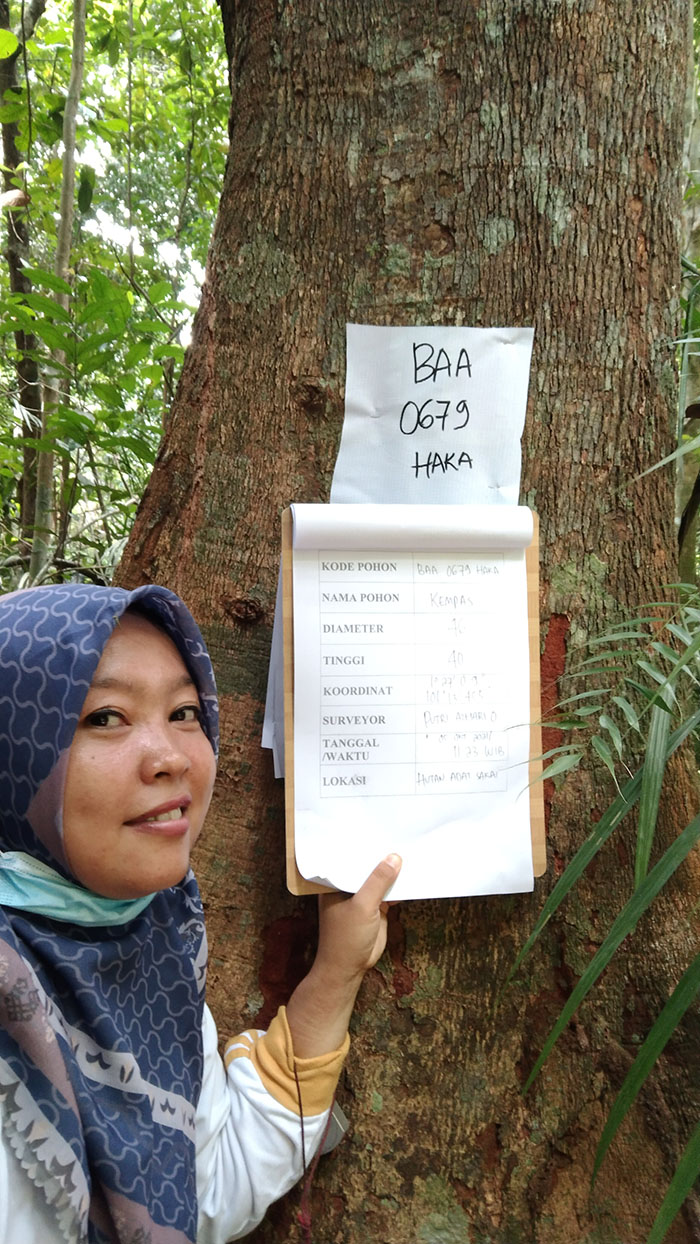 BAA
0679
HAKA
KODE POHON BAA 0679 HAKA
NAMA POHON KEMPAS
DIAMETER
TINGGI 40
KOORDINAT
SURVEYOR PUTRI
TANGGAL
/WAKTU 11 23 WIB
LOKASI HUTAN ADAT SAKAI